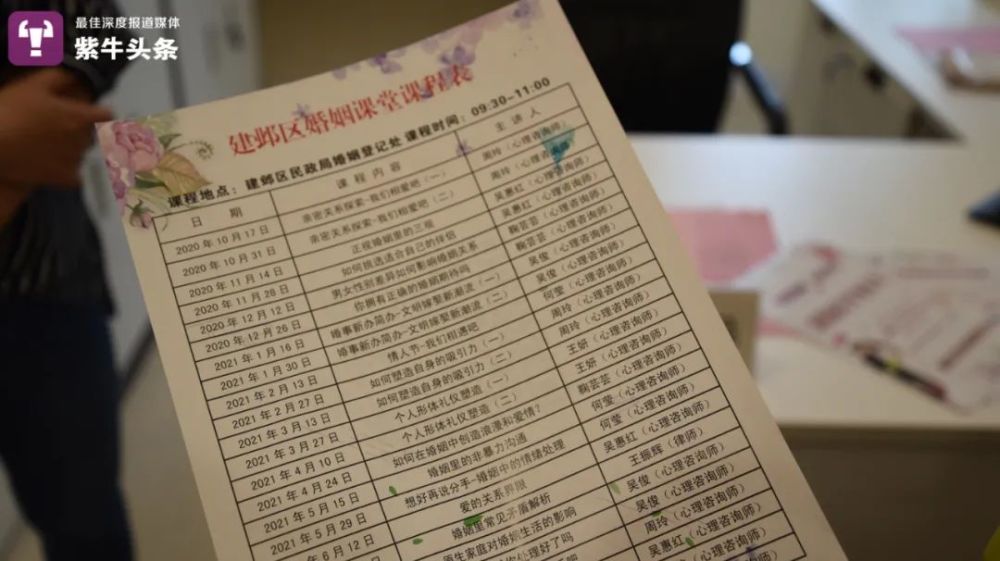 最佳深度报道媒体
紫牛头条
建邺区婚姻课堂课程表
课程地点：建邺区民政局婚姻登记处 课程时间：09:30-11:00
日期 课程内容 主讲人
2020年10月17日 亲密关系探索-我们相爱吧（一） 周玲（心理咨询师）
2020年10月31日 亲密关系探索-我们相爱吧（二） 周玲（心理咨询师）
2020年11月14日 正视婚姻里的三观 吴惠红（心理咨询师）
2020年11月28日 如何挑选适合自己的伴侣 吴惠红（心理咨询师）
2020年12月12日 男女性别差异如何影响婚姻关系 鞠芸芸（心理咨询师）
2020年12月26日 你拥有正确的婚姻期待吗 鞠芸芸（心理咨询师）
2021年1月16日 婚事新办简办-文明嫁娶新潮流（一） 吴俊（心理咨询师）
2021年1月30日 婚事新办简办-文明嫁娶新潮流（二） 何莹（心理咨询师）
2021年2月13日 情人节-我们相遇吧 周玲（心理咨询师）
2021年2月27日 如何塑造自身的吸引力（一） 周玲（心理咨询师）
2021年3月13日 如何塑造自身的吸引力（二） 王妍（心理咨询师）
2021年3月27日 个人形体礼仪塑造（一） 王妍（心理咨询师）
2021年4月10日 个人形体礼仪塑造（二） 鞠芸芸（心理咨询师）
2021年4月24日 如何在婚姻中创造浪漫和爱情？ 何莹（心理咨询师）
2021年5月15日 婚姻里的非暴力沟通 何莹（心理咨询师）
2021年5月29日 想好再说分手-婚姻中的情绪处理 吴惠红（心理咨询师）
2021年6月12日 爱的关系界限 王振辉（律师）
婚姻里常见矛盾解析 吴俊（心理咨询师）
原生家庭对婚姻生活的影响 吴俊（心理咨询师）
处理好了吗 周玲（心理咨询师）
吧 吴惠红（心理咨询师）